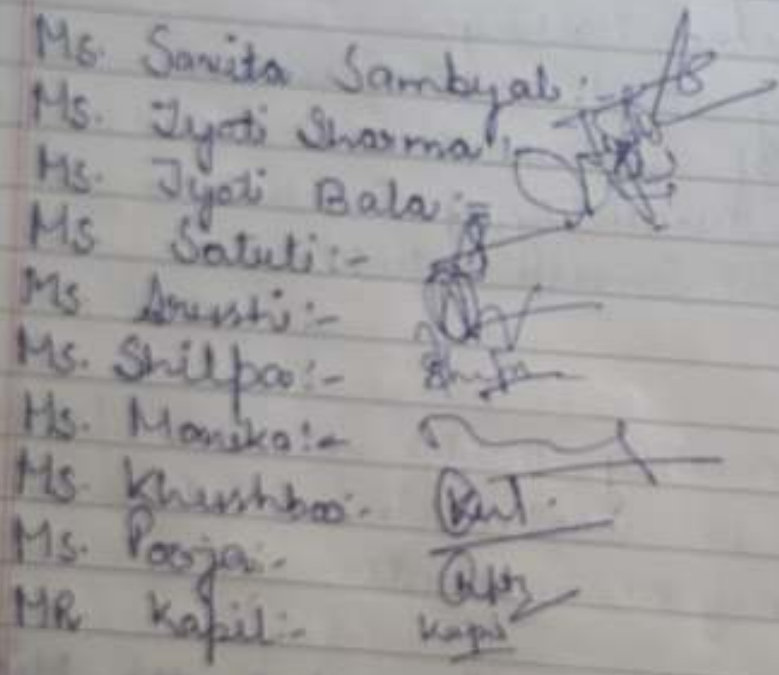 Ms. Sarita Sambyal :-
Ms. Jyoti Sharma :-
Ms. Jyoti Bala :-
Ms Satuti :-
Ms Arushi :-
Ms. Shilpa :-
Ms. Monika :-
Ms. Khushboo :-
Ms. Pooja :-
MR Kapil :- Kapil